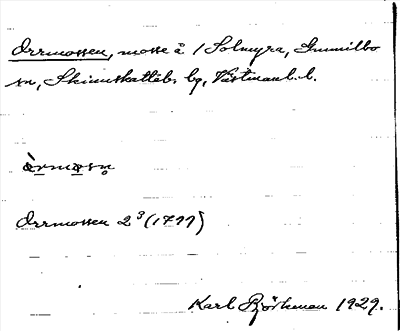 Orrmossen, mosse å / Solmyra, Gunnilbo
sn, Skinnskatteb. bg, Västmanl. l.
òrmɷsn̥
Orrmossen 2³ (1777)
Karl Björkman 1929.